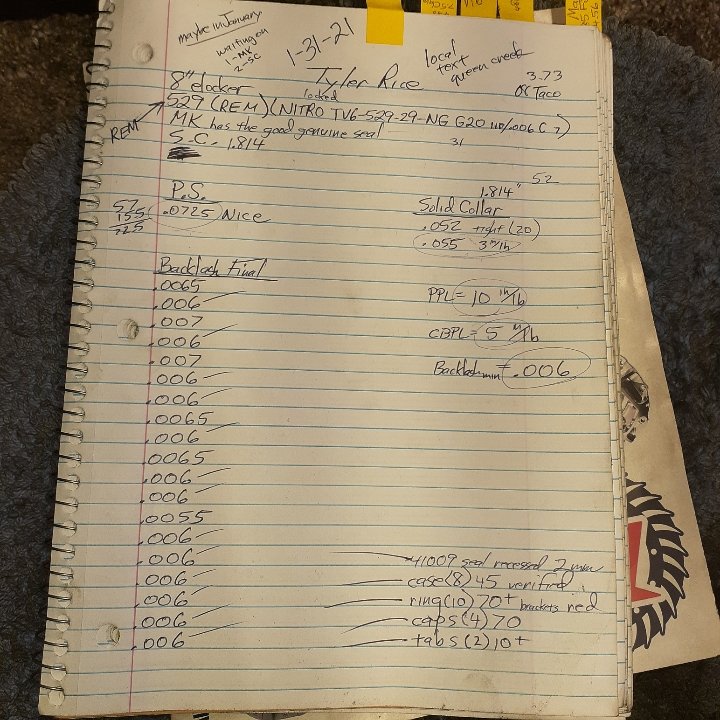 maybe in January
waiting on
1-MK
2-SC
1-31-21
local
text
queen creek
3.73
OR Taco
8" elocker
Tyler Rice
locked
529 (REM) (NITRO TV6-529-29-NG G20 w/.006 C 2)
REM
MK has the good genuine seal
31
S.C. 1.814
P.S.
57
155
725
.0725 Nice
52
1.814"
Solid Collar
.052 tight (20)
.055 3 in/lb
Backlash Final
.0065
.006
.007
.006
.007
.006
.006
.0065
.006
.0065
.006
.006
.0055
.006
.006
.006
.006
.006
.006
PPL= 10 in/lb
CBPL= 5 in/lb
Backlash min = .006
41009 seal recessed 2mm
case (8) 45 verified
ring (10) 70+ brackets red
caps (4) 70
tabs (2) 10+